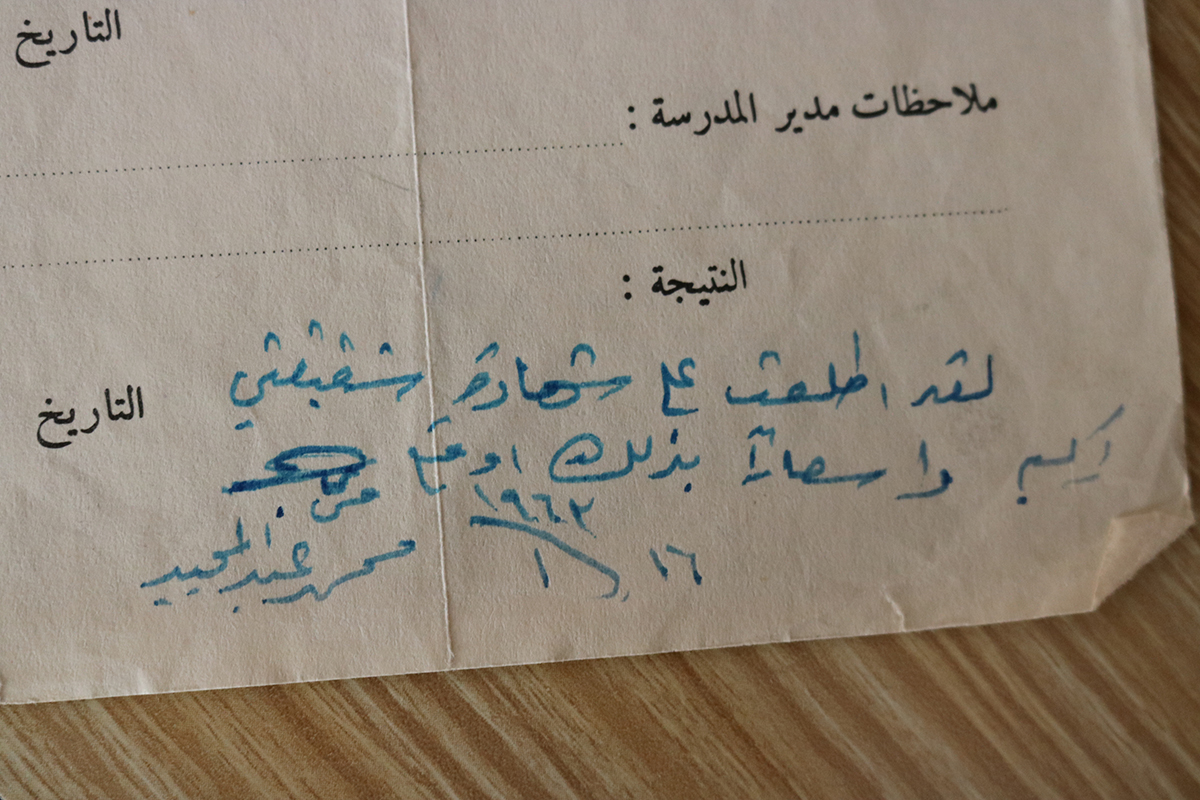 التاريخ
ملاحظات مدير المدرسة :
النتيجة :
التاريخ
لقد اطلعت على شهادة شقيقتي
بذلك اوقع
١٩٦٣
١٦ / ١
محمد عبد المجيد